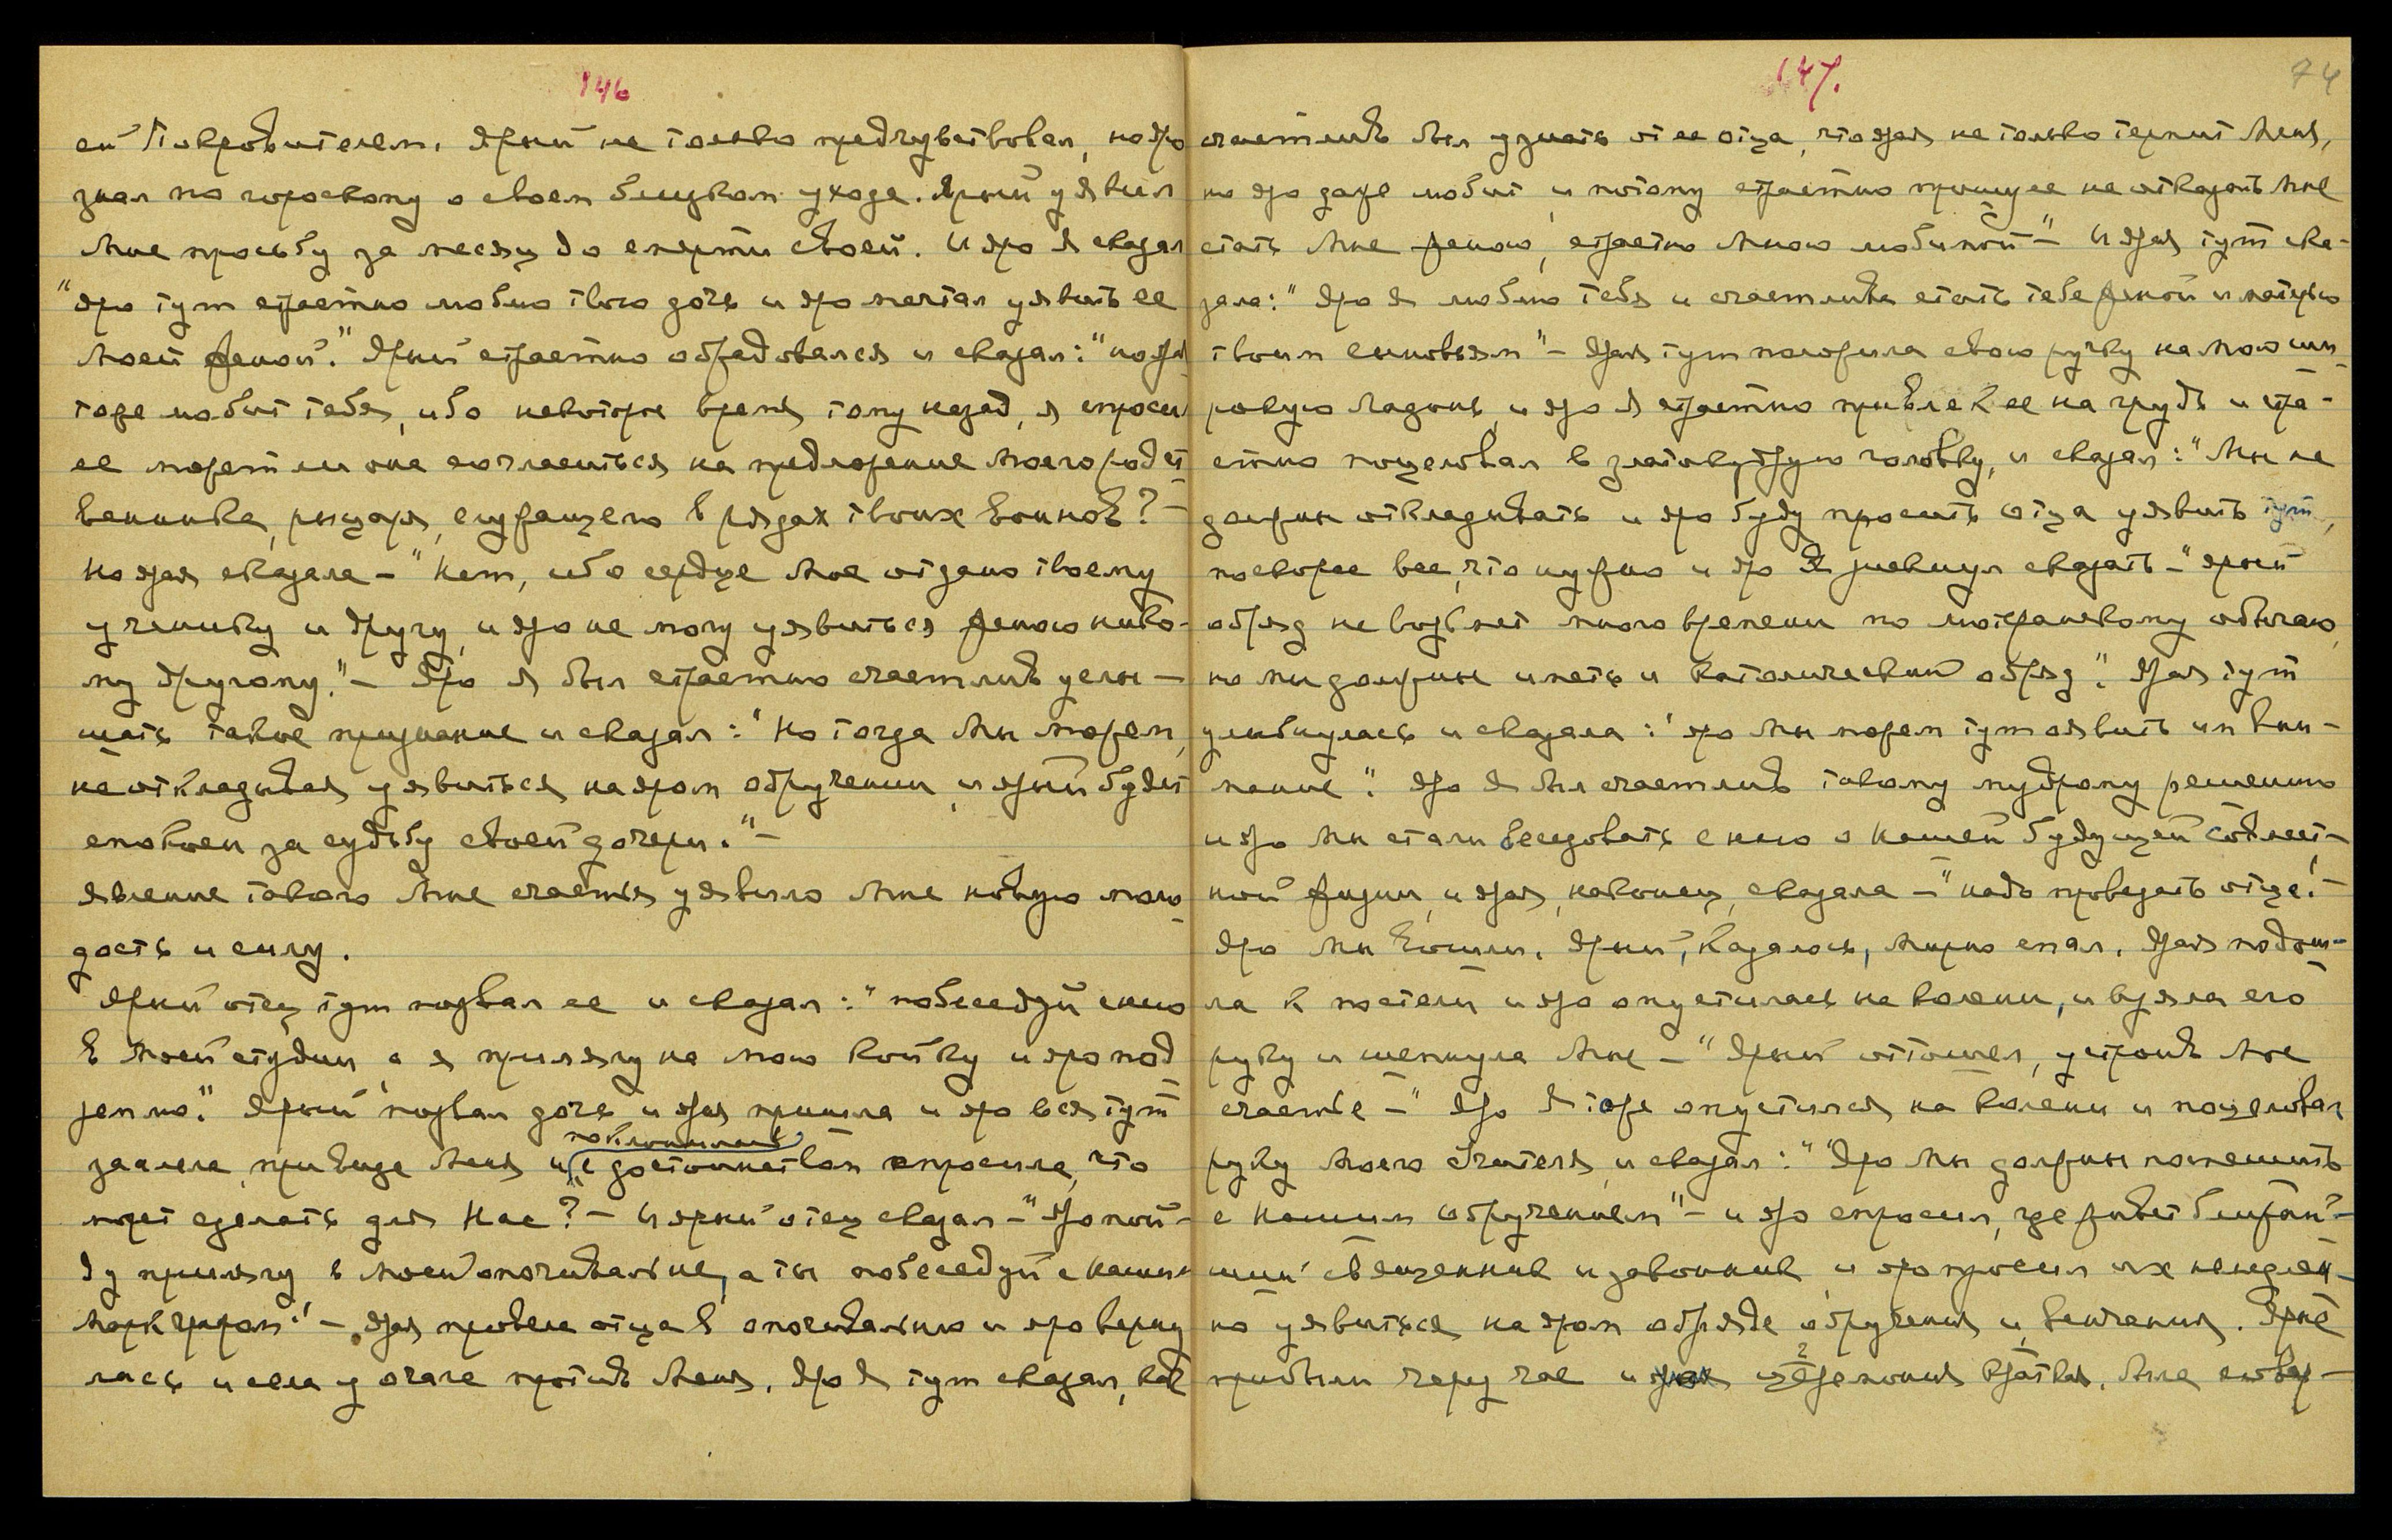 146
ей Покровителем. Ярый не только предчувствовал, но яро
знал по гороскопу о своем близком уходе. Ярый уявил
Мне просьбу за месяц до смерти своей. И яро Я сказал
"яро тут страстно люблю твою дочь и яро мечтал уявить ее
Моей женой." Ярый страстно обрадовался и сказал: "но ярая
тоже любит тебя, ибо некоторое время тому назад, я спросил
ее может ли она согласиться на предложение моего родст-
венника, рыцаря, служащего в рядах твоих воинов? –
но ярая сказала – "Нет, ибо сердце мое отдано твоему
ученику и другу, и яро не могу уявиться женою нико-
му другому." – Яро Я был страстно счастлив услы-
шать такое признание и сказал: "Но тогда Мы можем,
не откладывая, уявиться на яром обручении, и ярый будет
спокоен за судьбу своей дочери." –
явление такого Мне счастья уявило Мне новую моло-
дость и силу.
Ярый отец тут позвал ее и сказал: "побеседуй с нею
в моей студии, а я прилягу на мою койку и яро под-
ремлю." Ярый позвал дочь и ярая пришла и яро вся тут
заалела, при виде Меня и поклонилась
с достоинством спросила, что
может сделать для Нас? – И ярый отец сказал – "Яро пой-
ду прилягу в моей опочивальне, а ты побеседуй с нашим
Маркграфом! – ярая провела отца в опочивальню и яро верну-
лась и села у очага против Меня. Яро Я тут сказал, как
147. 74
счастлив был узнать от ее отца, что ярая не только терпит Меня,
но яро даже любит, и потому страстно прошу ее не отказать Мне
стать Мне женою, страстно Мною любимой – " И ярая тут ска-
зала: "Яро я люблю тебя и счастлива стать тебе женой и матерью
твоим сыновьям" – Ярая тут положила свою ручку на Мою ши-
рокую ладонь, и яро Я страстно привлек ее на грудь и стра-
стно поцеловал в златокудрую головку, и сказал: "Мы не
должны откладывать и яро буду просить отца уявить тут,
поскорее все, что нужно и яро Я рискнул сказать – "ярый
обряд не возьмет много времени по лютеранскому обычаю,
но мы должны иметь и католический обряд". Ярая тут
улыбнулась и сказала: "яро Мы можем тут явить им вни-
мание". Яро Я был счастлив такому мудрому решению
и яро Мы стали беседовать с нею о нашей будущей совмест-
ной жизни, и ярая, наконец, сказала – "надо проведать отца! –
Яро Мы вошли. Ярый, казалось, мирно спал. Ярая подош-
ла к постели и яро опустилась на колени, и взяла его
руку и шепнула Мне – "Ярый отошел, устроив мое
счастье – " Яро Я тоже опустился на колени и поцеловал
руку моего Учителя, и сказал: "Яро Мы должны поспешить
с нашим обручением" – и яро спросил, где живет ближай-
ший священник и законник, и яро просил их немедлен-
но уявиться на яром обряде обручения и венчания. Ярые
прибыли через час и 2 церемонии клятвы, Мне совер-